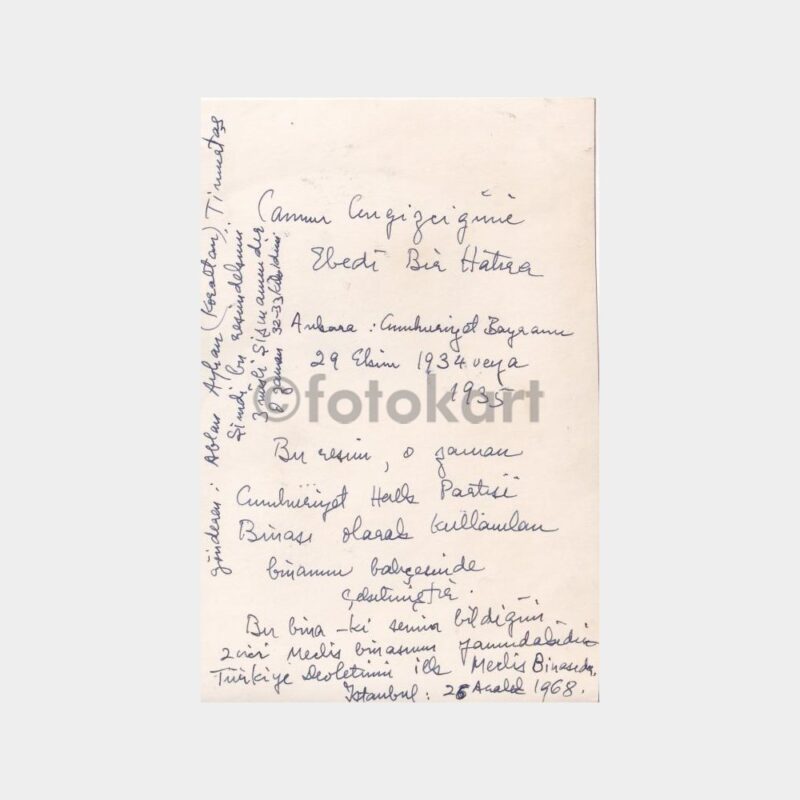 Canım Cengizciğime
Ebedî Bir Hatıra
Ankara : Cumhuriyet Bayramı
29 Ekim 1934 veya
1935
Bu resim, o zaman
Cumhuriyet Halk Partisi
Binası olarak kullanılan
binanın bahçesinde
çekilmiştir.
Bu bina - ki senin bildiğin
2inci Meclis binasının yanındakidir
Türkiye Devletinin ilk Meclis Binasıdır.
İstanbul : 26 Aralık 1968.
gönderen : Ablan Ayhan (Koraltan) Timurtaş
Şimdi bu resimdekinin
3 misli Şişmanımdır
O zaman 32-33 kilo idim
©fotokart